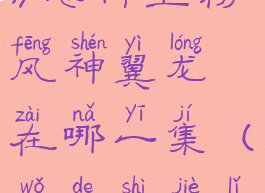 fēng shén yì lóng
风神翼龙
zài nǎ yī jí
在哪一集（
wǒ de shì jiè lǐ